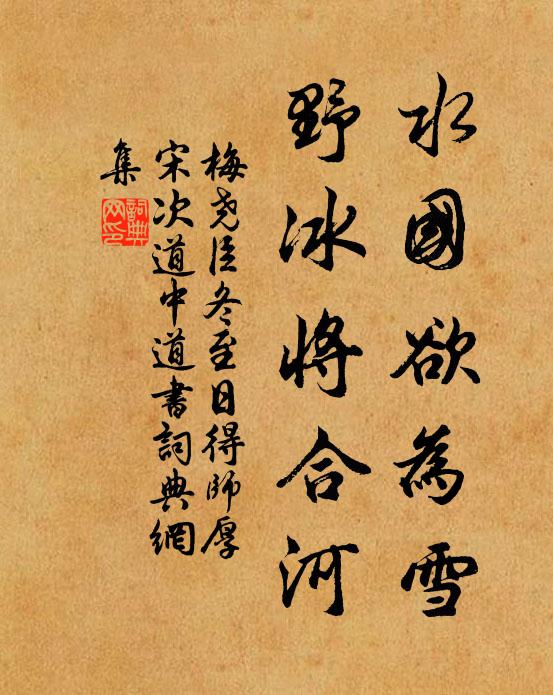 水國欲為雪
野冰將合河
梅堯臣冬至日得師厚
宋次道中道書詞典網
集
詞典網印